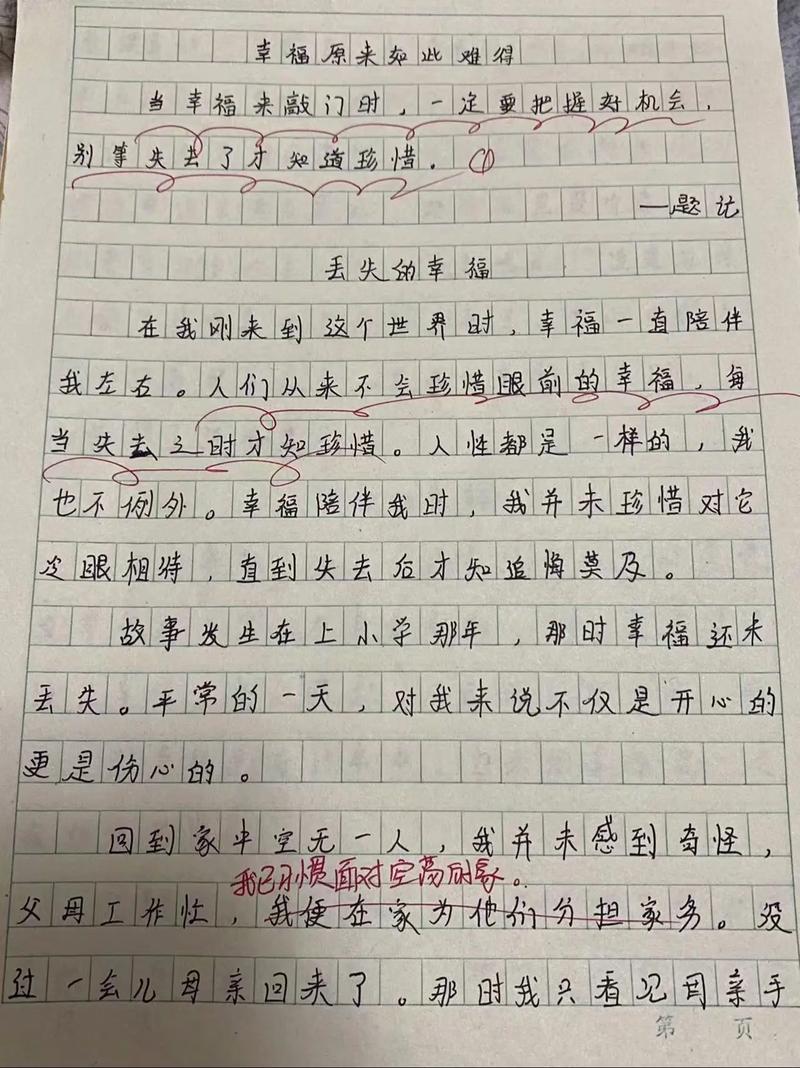 幸福原来如此难得
当幸福来敲门时，一定要把握好机会，
别等失去了才知道珍惜。①
——题记
丢失的幸福
在我刚来到这个世界时，幸福一直陪伴
我左右。人们从来不会珍惜眼前的幸福，每
当失去之时才知珍惜。人性都是一样的，我
也不例外。幸福陪伴我时，我并未珍惜对它
次眼相待，直到失去后才知追悔莫及。
故事发生在上小学那年，那时幸福还未
丢失。平常的一天，对我来说不仅是开心的
更是伤心的。
回到家中空无一人，我并未感到奇怪，
我已习惯面对空荡的家。
父母工作忙，我便在家为他们分担家务。没
过一会儿母亲回来了。那时我只看见母亲手
第 页